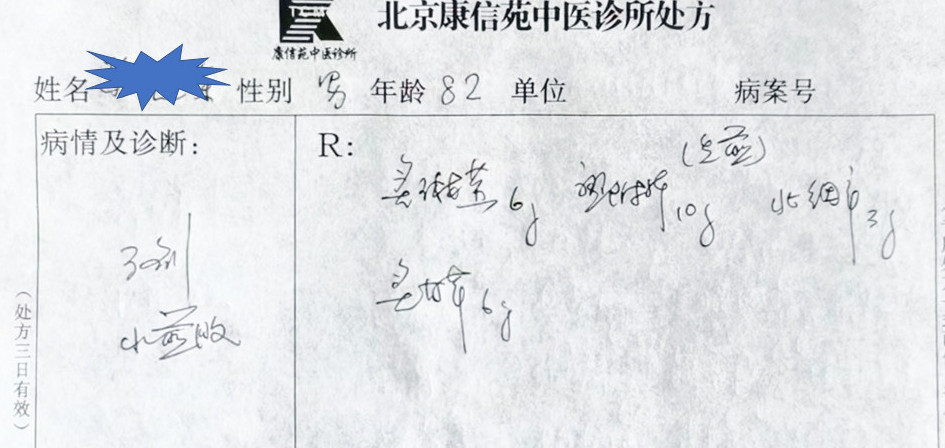 北京康信苑中医诊所处方
康信苑中医诊所
姓名 性别 男 年龄 82 单位 病案号
病情及诊断：
R:
(先煎)
炙麻黄 6g 10g 北细辛 3g
炙甘草 6g
3剂
水煎服
（处方三日有效）